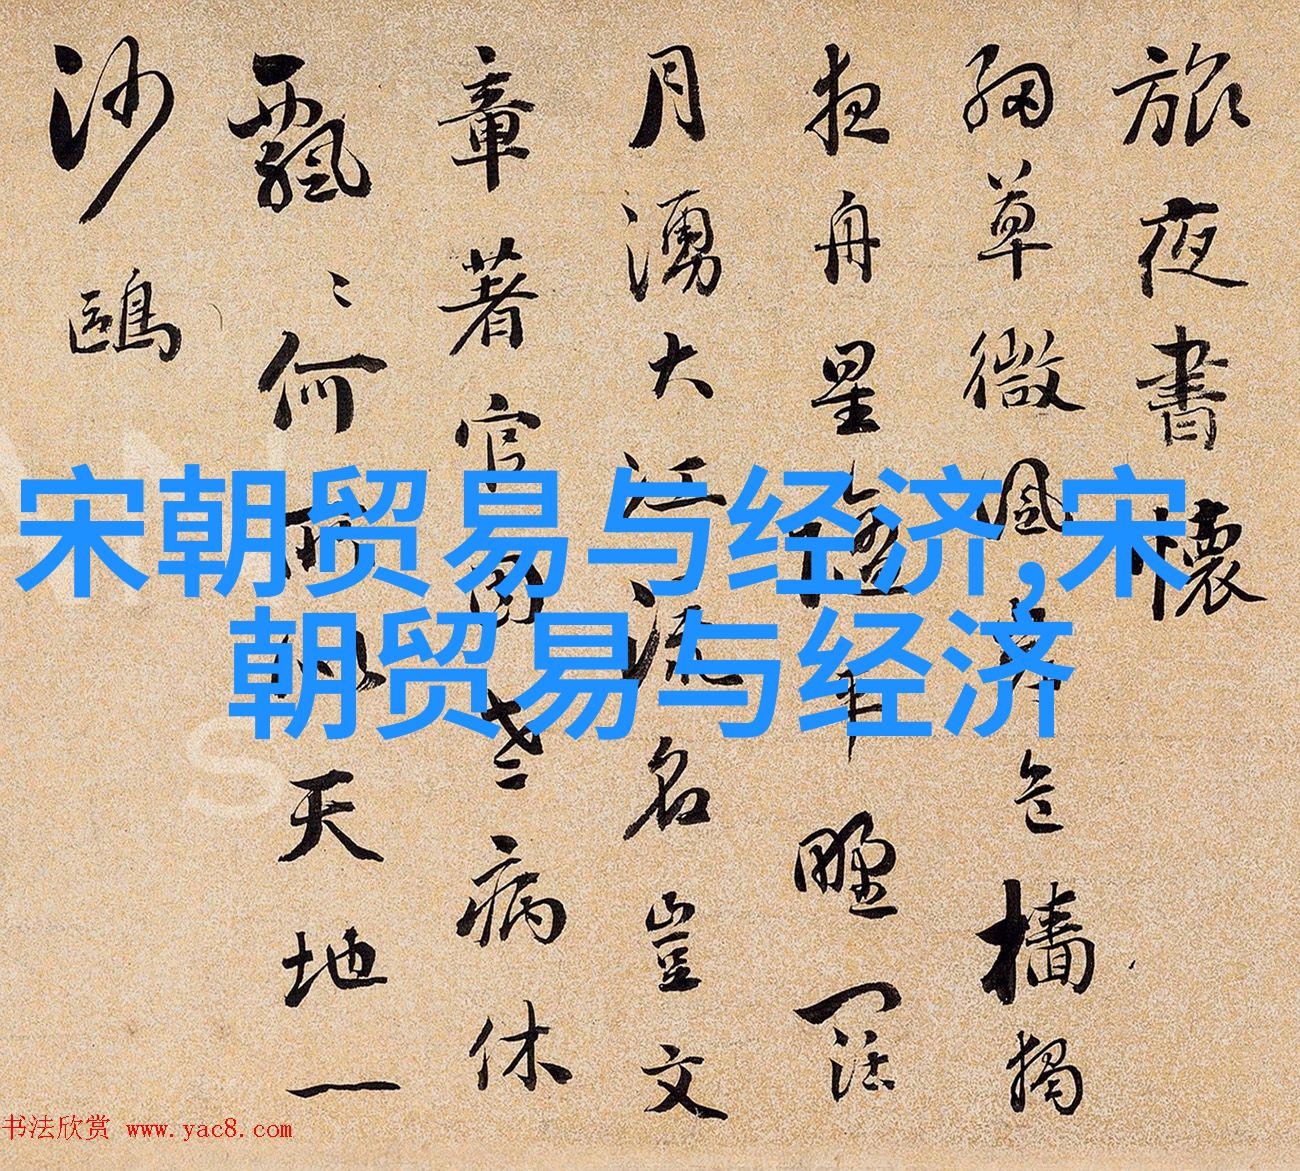 旅夜書懷
細草微風岸危檣獨
夜舟星平野闊
月湧大江流名豈文
章著官因老病休
飄〻何所似天地一
沙鷗
宋朝贸易与经济,宋
朝贸易与经济
书法欣赏 www.yac8.com